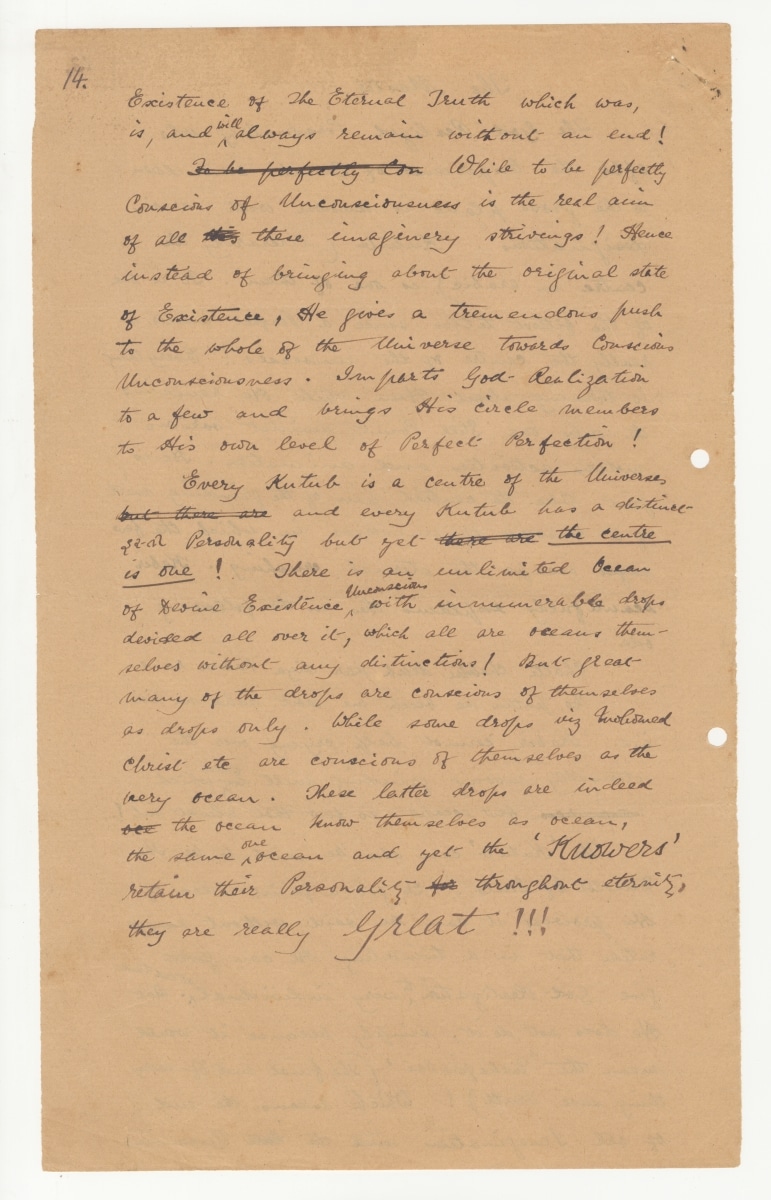 14.
Existence of The Eternal Truth which was,
is, and will always remain without an end!
To be perfectly Con While to be perfectly
Conscious of Unconsciousness is the real aim
of all this these imaginery strivings! Hence
instead of bringing about the original state
of Existence, He gives a tremendous push
to the whole of the Universe towards Conscious
Unconsciousness. Imparts God-Realization
to a few and brings His circle members
to His own level of Perfect Perfection!
Every Kutub is a centre of the Universe,
but there are and every Kutub has a distinct
Personality but yet there are the centre
is one! There is an unlimited Ocean
of Devine Existence, Unconscious with innumerable drops
devided all over it, which all are oceans them-
selves without any distinctions! But great
many of the drops are conscious of themselves
as drops only. While some drops viz Mohomed
Christ etc are conscious of themselves as the
very ocean. These latter drops are indeed
oce the ocean know themselves as ocean,
the same one ocean and yet the 'Knowers'
retain their Personality for throughout eternity,
they are really Great!!!